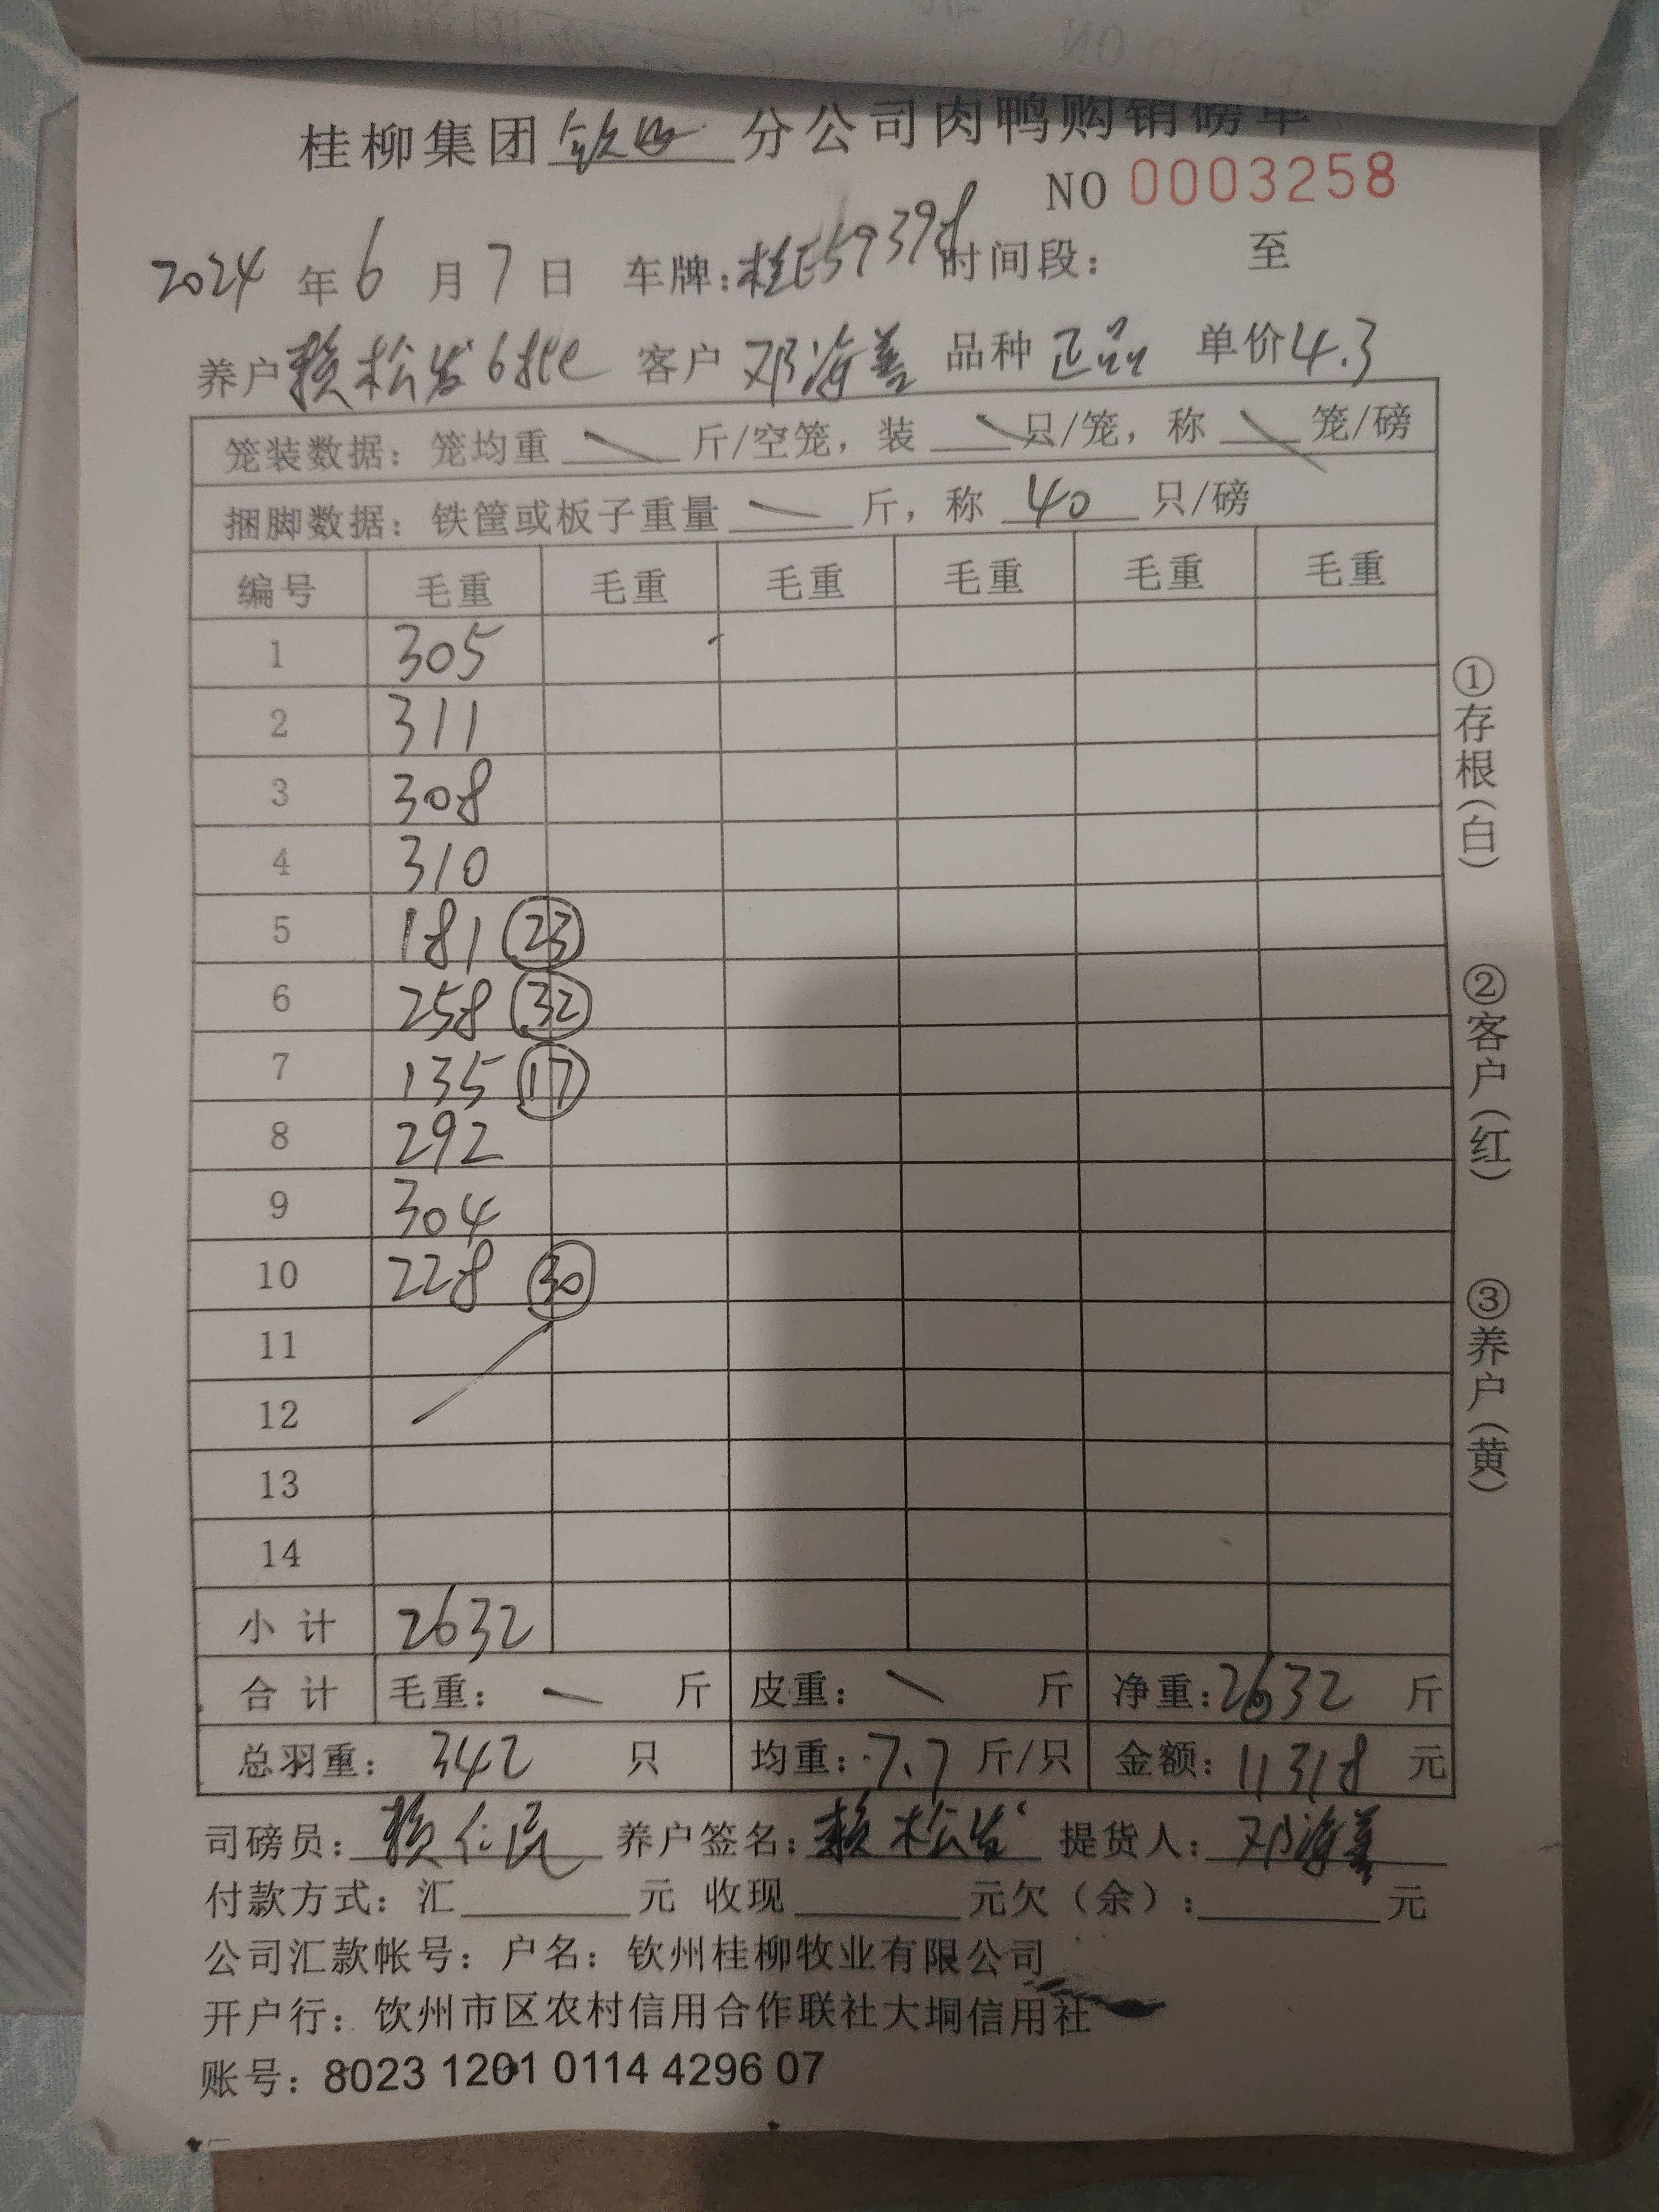 桂柳集团钦州分公司肉鸭购销磅单
NO 0003258
2024年6月7日 车牌:桂E59398 时间段: 至
养户赖松发6批 客户 邓海善 品种 正品 单价4.3
笼装数据: 笼均重 \ 斤/空笼, 装 \ 只/笼, 称 \ 笼/磅
捆脚数据: 铁筐或板子重量 \ 斤, 称 40 只/磅
编号 毛重 毛重 毛重 毛重 毛重 毛重
1 305
2 311
3 308
4 310
5 181 23
6 258 32
7 135 17
8 292
9 304
10 228 30
11
12
13
14
小计 2632
合计 毛重: \ 斤 皮重: \ 斤 净重:2632 斤
总羽重: 342 只 均重:7.7 斤/只 金额: 11318 元
司磅员: 赖仁民 养户签名: 赖松发 提货人: 邓海善
付款方式: 汇 元 收现 元欠(余): 元
公司汇款帐号: 户名: 钦州桂柳牧业有限公司
开户行: 钦州市区农村信用合作联社大垌信用社
账号: 8023 1201 0114 4296 07
①存根(白)
②客户(红)
③养户(黄)